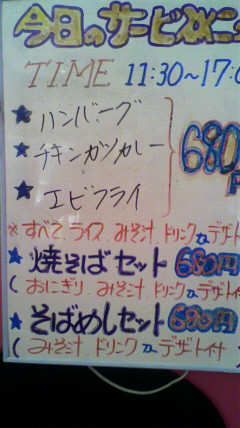 今日のサービスメニュ
TIME 11:30～17:0
★ ハンバーグ
★ チキンカツカレー 680
★ エビフライ
※すべて ライス みそ汁 ドリンク デザート
★焼そばセット 680円
(おにぎり みそ汁 ドリンク デザート
★そばめしセット 680円
(みそ汁 ドリンク デザート付